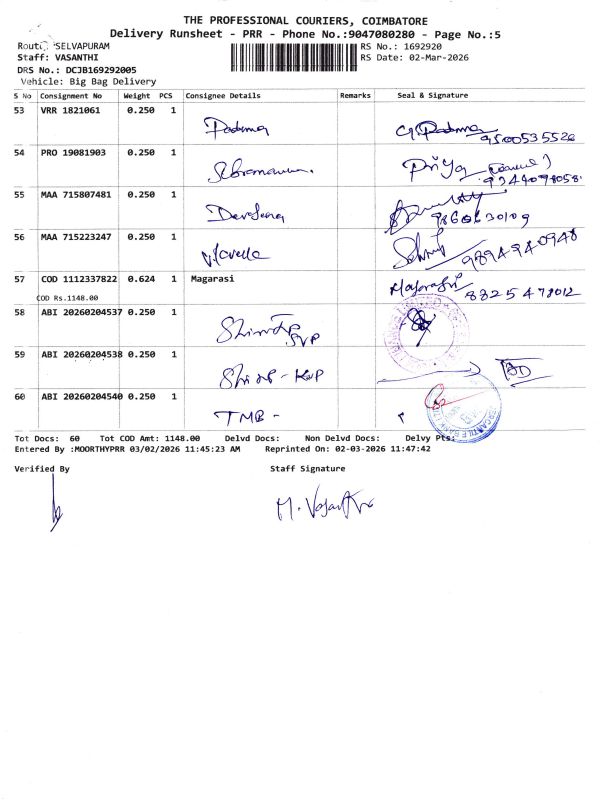 THE PROFESSIONAL COURIERS, COIMBATORE
Delivery Runsheet - PRR - Phone No.:9047080280 - Page No.:5
Route: SELVAPURAM
RS No.: 1692920
Staff: VASANTHI
RS Date: 02-Mar-2026
DRS No.: DCJB169292005
Vehicle: Big Bag Delivery
S No Consignment No Weight PCS Consignee Details Remarks Seal & Signature
53 VRR 1821061 0.250 1 Padma Padma 9500535526
54 PRO 19081903 0.250 1 Priya
55 MAA 715807481 0.250 1 Devasena
56 MAA 715223247 0.250 1 9894940948
57 COD 1112337822 0.624 1 Magarasi 8825478012
COD Rs.1148.00
58 ABI 20260204537 0.250 1 SVP
59 ABI 20260204538 0.250 1
60 ABI 20260204540 0.250 1 TMB -
Tot Docs: 60 Tot COD Amt: 1148.00 Delvd Docs: Non Delvd Docs: Delvy Pts:
Entered By :MOORTHYPRR 03/02/2026 11:45:23 AM Reprinted On: 02-03-2026 11:47:42
Verified By Staff Signature